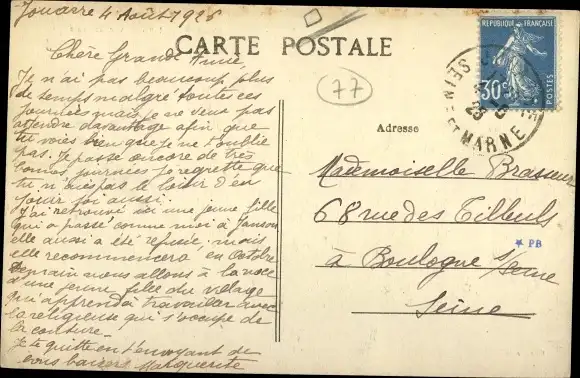 Jouarre 4 Août 1926
Chère Grande Amie,
Je n'ai pas beaucoup plus
de temps malgré toutes ces
journées mais je ne veux pas
attendre davantage afin que
tu voies bien que je ne t'oublie
pas. Je passe encore de très
bonnes journées je regrette que
tu n'aies pas le loisir d'en
jouir toi aussi.
J'ai retrouvé ici une jeune fille
qui a passé comme moi à Janson
elle aussi a été refusée, mais
elle recommencera en Octobre
Demain nous allons à la noce
d'une jeune fille du village
qui apprend à travailler avec
la religieuse qui s'occupe de
la couture.
Je te quitte en t'envoyant de
bons baisers Marguerite
CARTE POSTALE
77
REPUBLIQUE FRANÇAISE
30
POSTES
SEINE ET MARNE
Adresse
Mademoiselle Brasseur
68 rue des Tilleuls
* PB
à Boulogne s/Seine
Seine